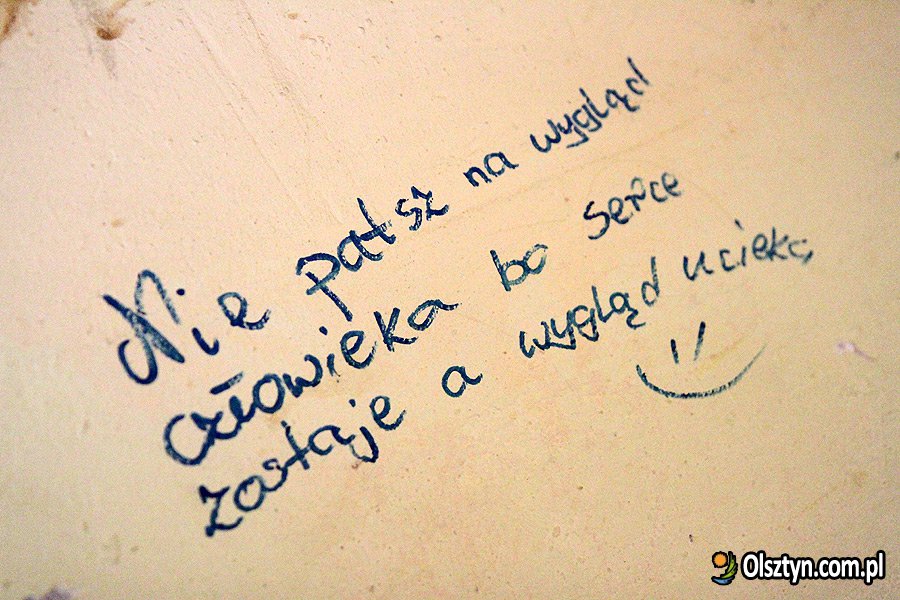 Nie patsz na wygląd
człowieka bo serce
zostaje a wygląd ucieka
Olsztyn.com.pl